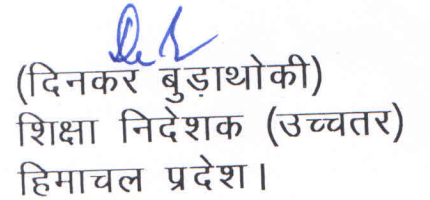 (दिनकर बुड़ाथोकी)
शिक्षा निदेशक (उच्चतर)
हिमाचल प्रदेश।